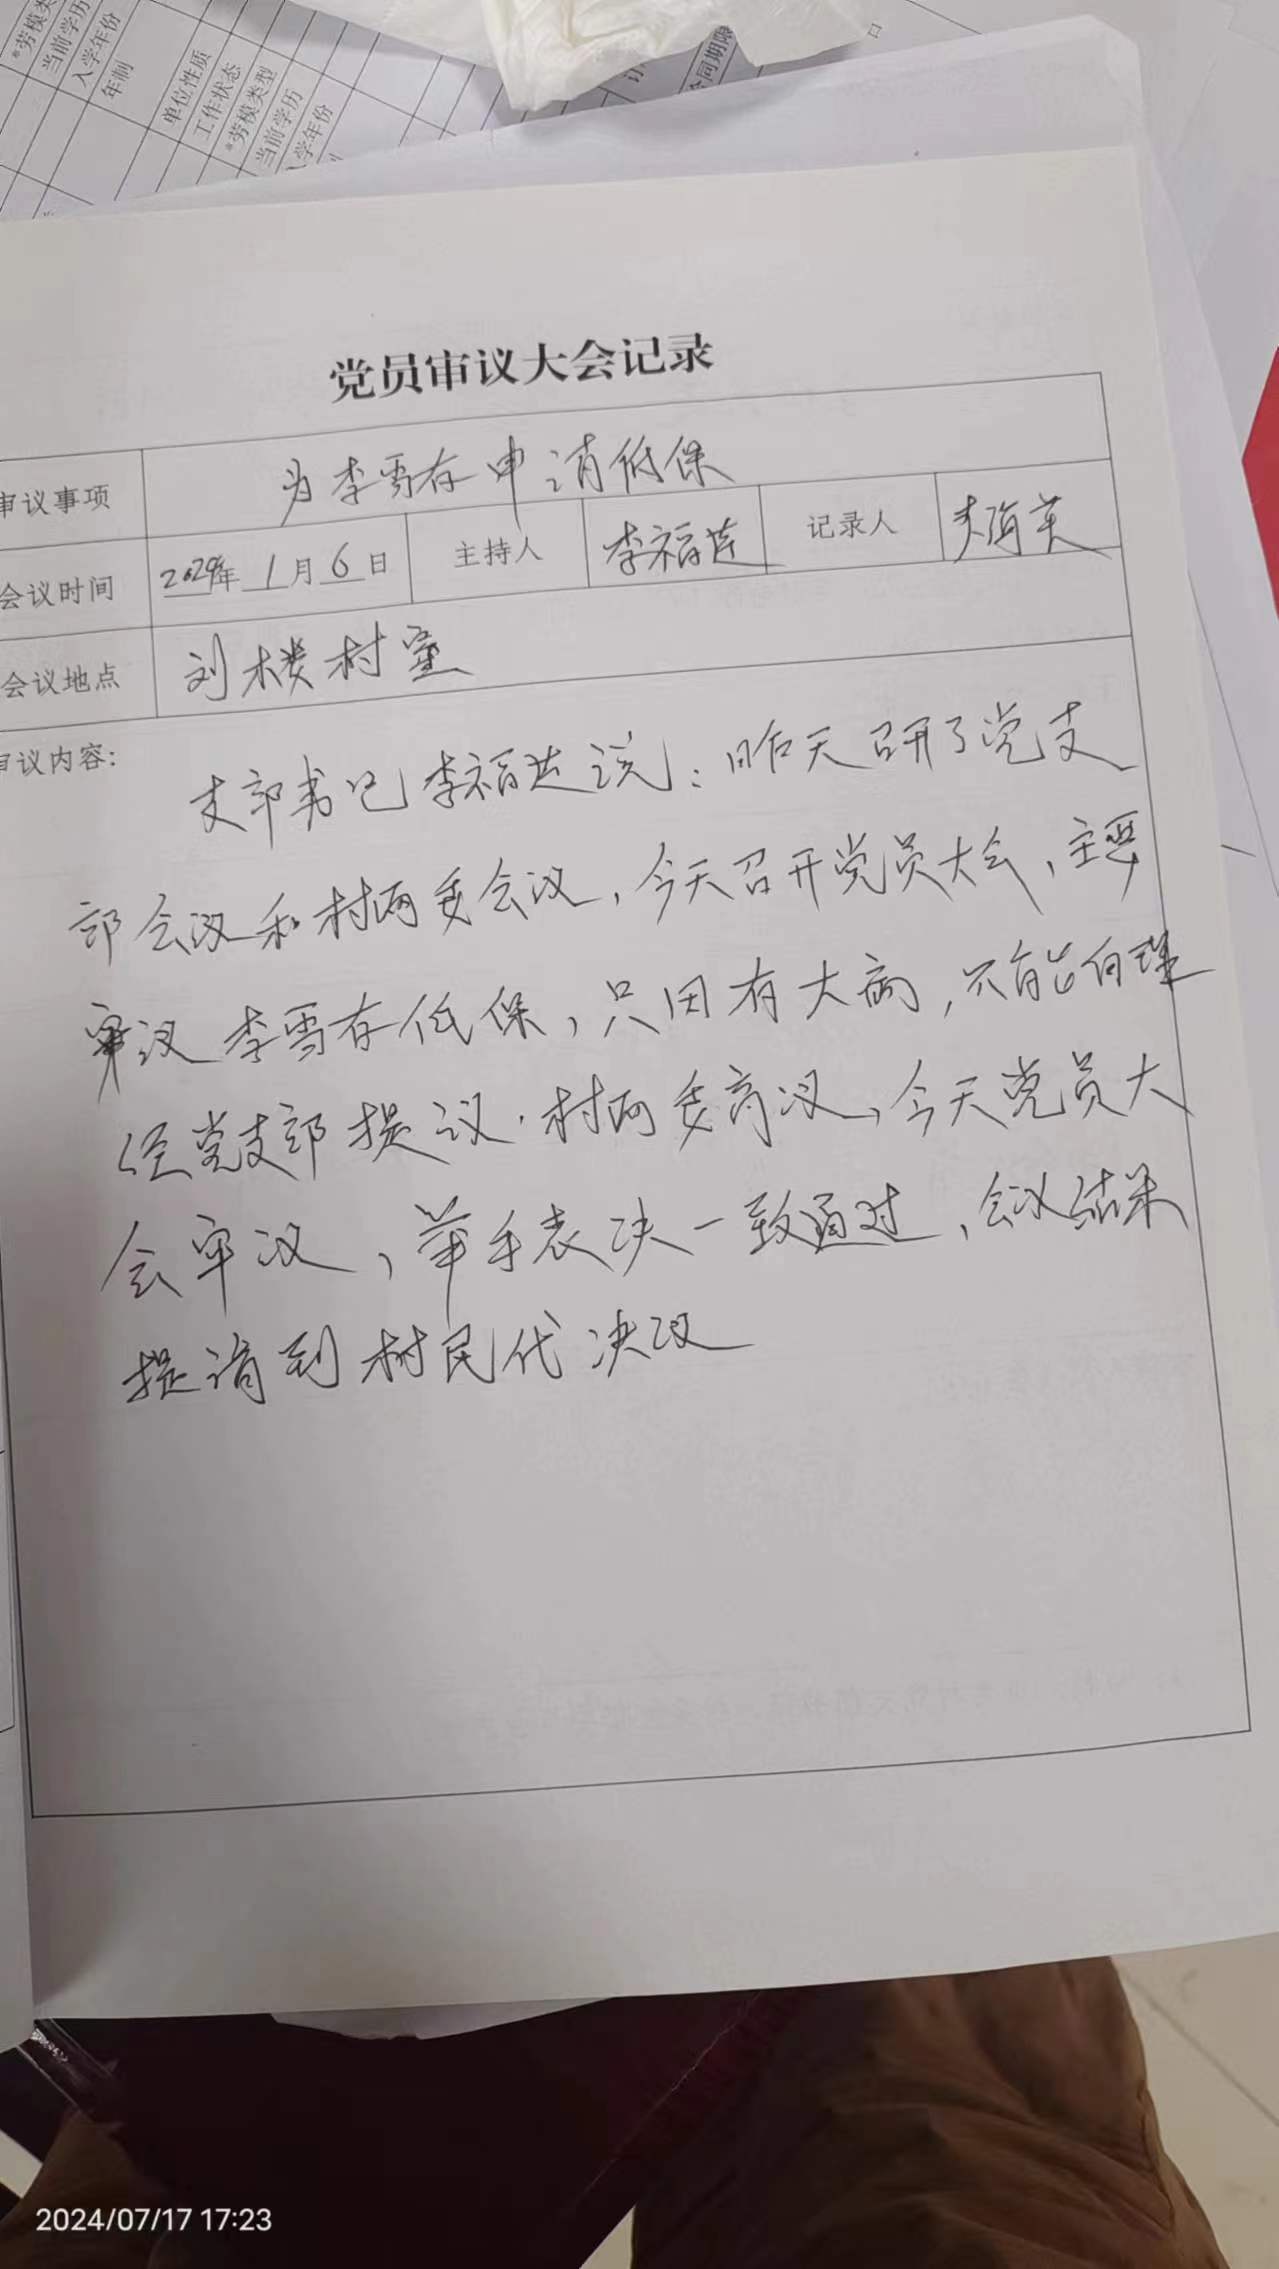 *劳模类
当前学历
入学年份
年制
单位性质
工作状态
*劳模类型
当前学历
入学年份
合同期限
党员审议大会记录
审议事项 为李雪存申请低保
会议时间 2024年 1月6日 主持人 李福莲 记录人
会议地点 刘楼村室
审议内容:
支部书记李福莲说:昨天召开了党支
部会议和村两委会议,今天召开党员大会,主要
审议李雪存低保,只因有大病,不能自理
经党支部提议.村两委商议,今天党员大
会审议,举手表决一致通过,会议结果
提请到村民代决议
2024/07/17 17:23